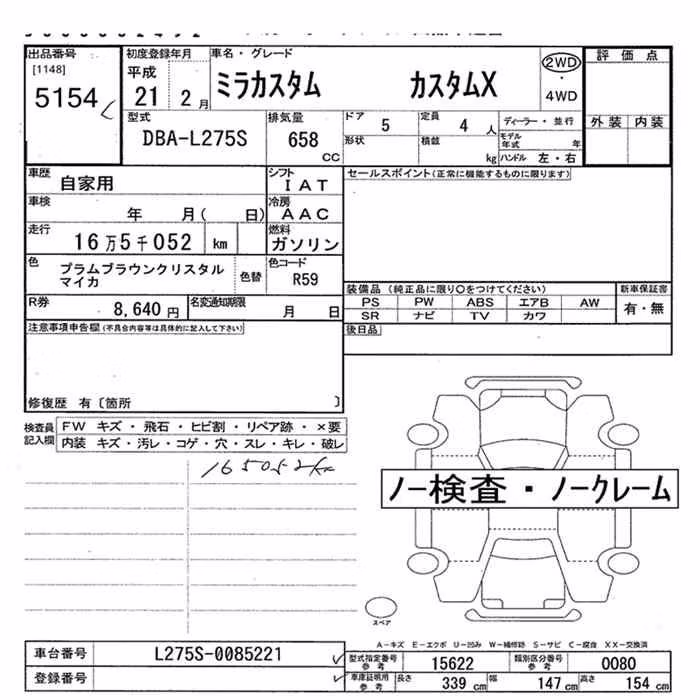 出品番号 初度登録年月 車名・グレード 評価点
[1148] 平成 2WD
5154 21 2月 ミラカスタム カスタムX ・
4WD
型式 排気量 ドア 定員 ディーラー・並行 外装 内装
DBA-L275S 658 CC 5 4 人
形状 積載 kg モデル年式 年
ハンドル 左・右
車歴 自家用 シフト IAT セールスポイント(正常に機能するものに限ります)
車検 年 月( 日) 冷房 AAC
走行 16万5千052 km 燃料 ガソリン
色 プラムブラウンクリスタル 色替 色コード R59
マイカ
装備品(純正品に限り○をつけてください) 新車保証書
R券 8,640円 名変通知期限 月 日 PS PW ABS エアB AW 有・無
SR ナビ TV カワ
注意事項申告欄(不具合内容等は具体的に記入して下さい) 後日品
修復歴 有〔箇所 〕
検査員記入欄 FW キズ・飛石・ヒビ割・リペア跡・×要
内装 キズ・汚レ・コゲ・穴・スレ・キレ・破レ
165052km
ノー検査・ノークレーム
スペア
A-キズ E-エクボ U-凹み W-補修跡 S-サビ C-腐食 XX-交換済
車台番号 L275S-0085221 型式指定番号 参考 15622 類別区分番号 参考 0080
登録番号 車庫証明用 参考 長さ 339 cm 幅 147 cm 高さ 154 cm